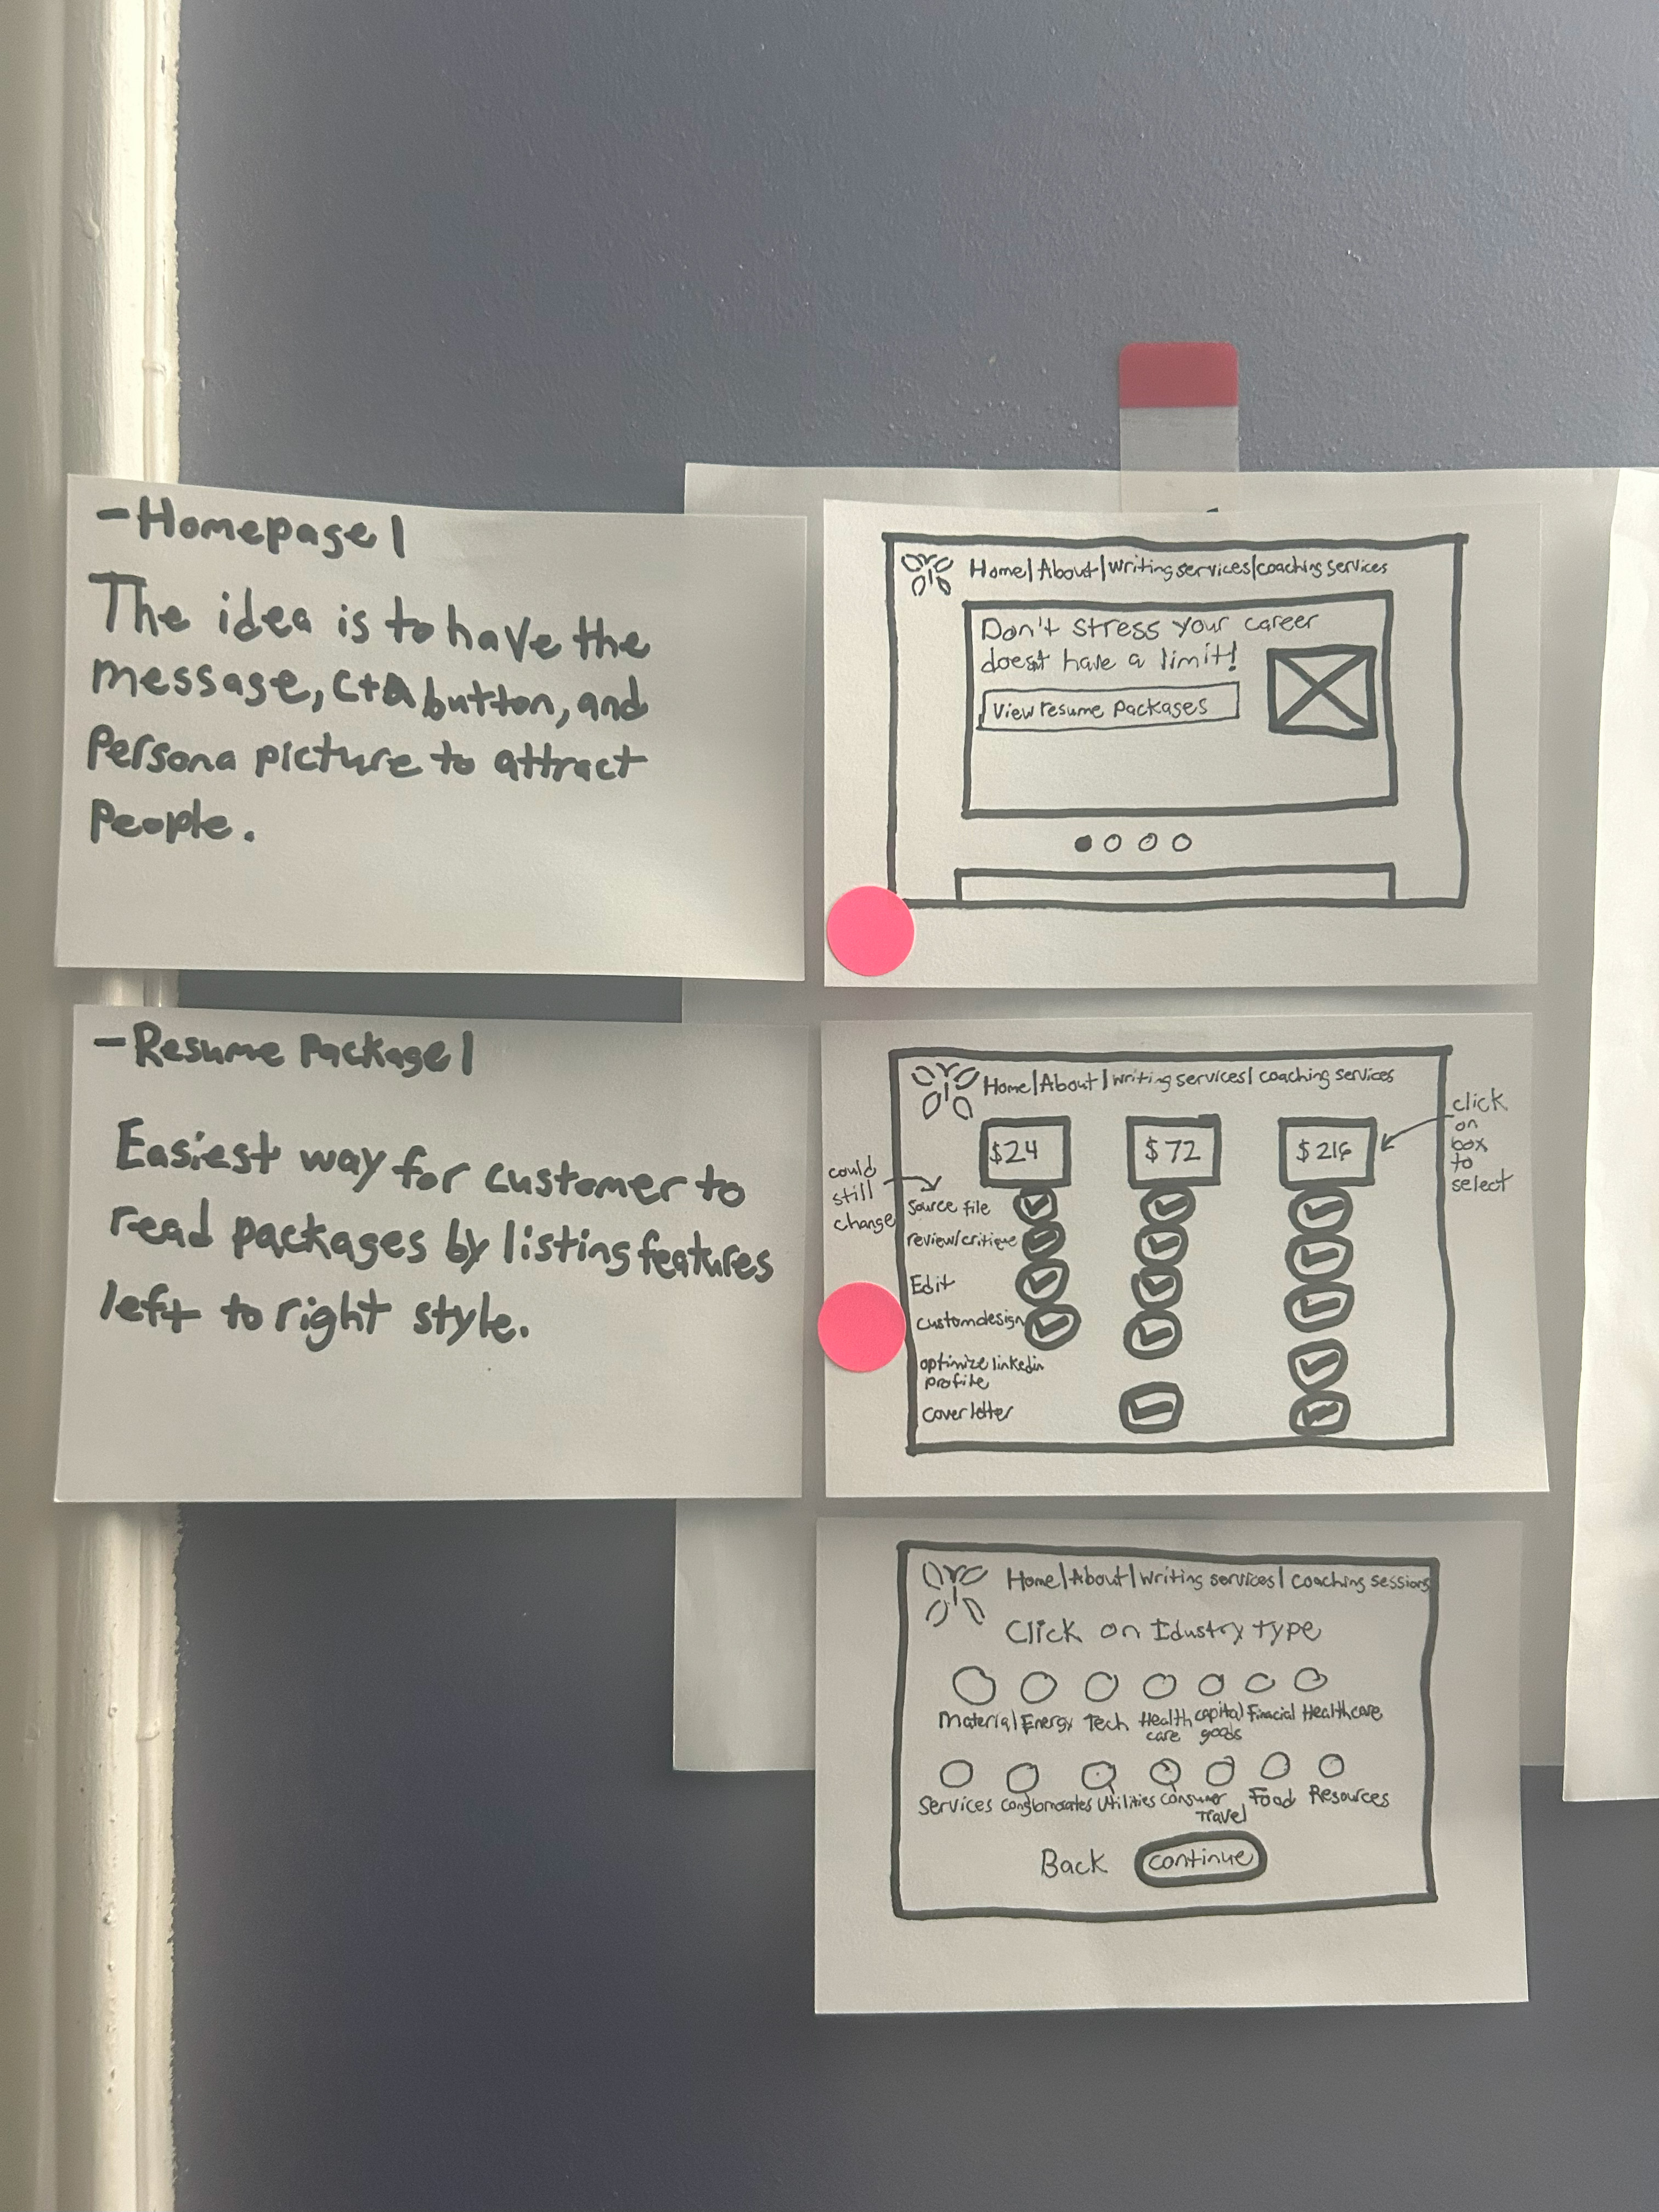 -Homepage 1
The idea is to have the
message, CtA button, and
Persona picture to attract
People.
Home|About|writing services|coaching services
Don't stress your career
doesnt have a limit!
View resume Packages
-Resume Package 1
Easiest way for customer to
read packages by listing features
left to right style.
Home|About|writing services|coaching services
$24 $72 $216
click
on
box
to
select
could
still
change
Source file
review/critique
Edit
custom design
optimize linkedin
profile
Cover letter
Home|About|writing services|coaching sessions
Click on Idustry type
Material Energy Tech Health capital Finacial Healthcare
care goods
Services Conglomorates Utilities Consumer Food Resources
Travel
Back continue